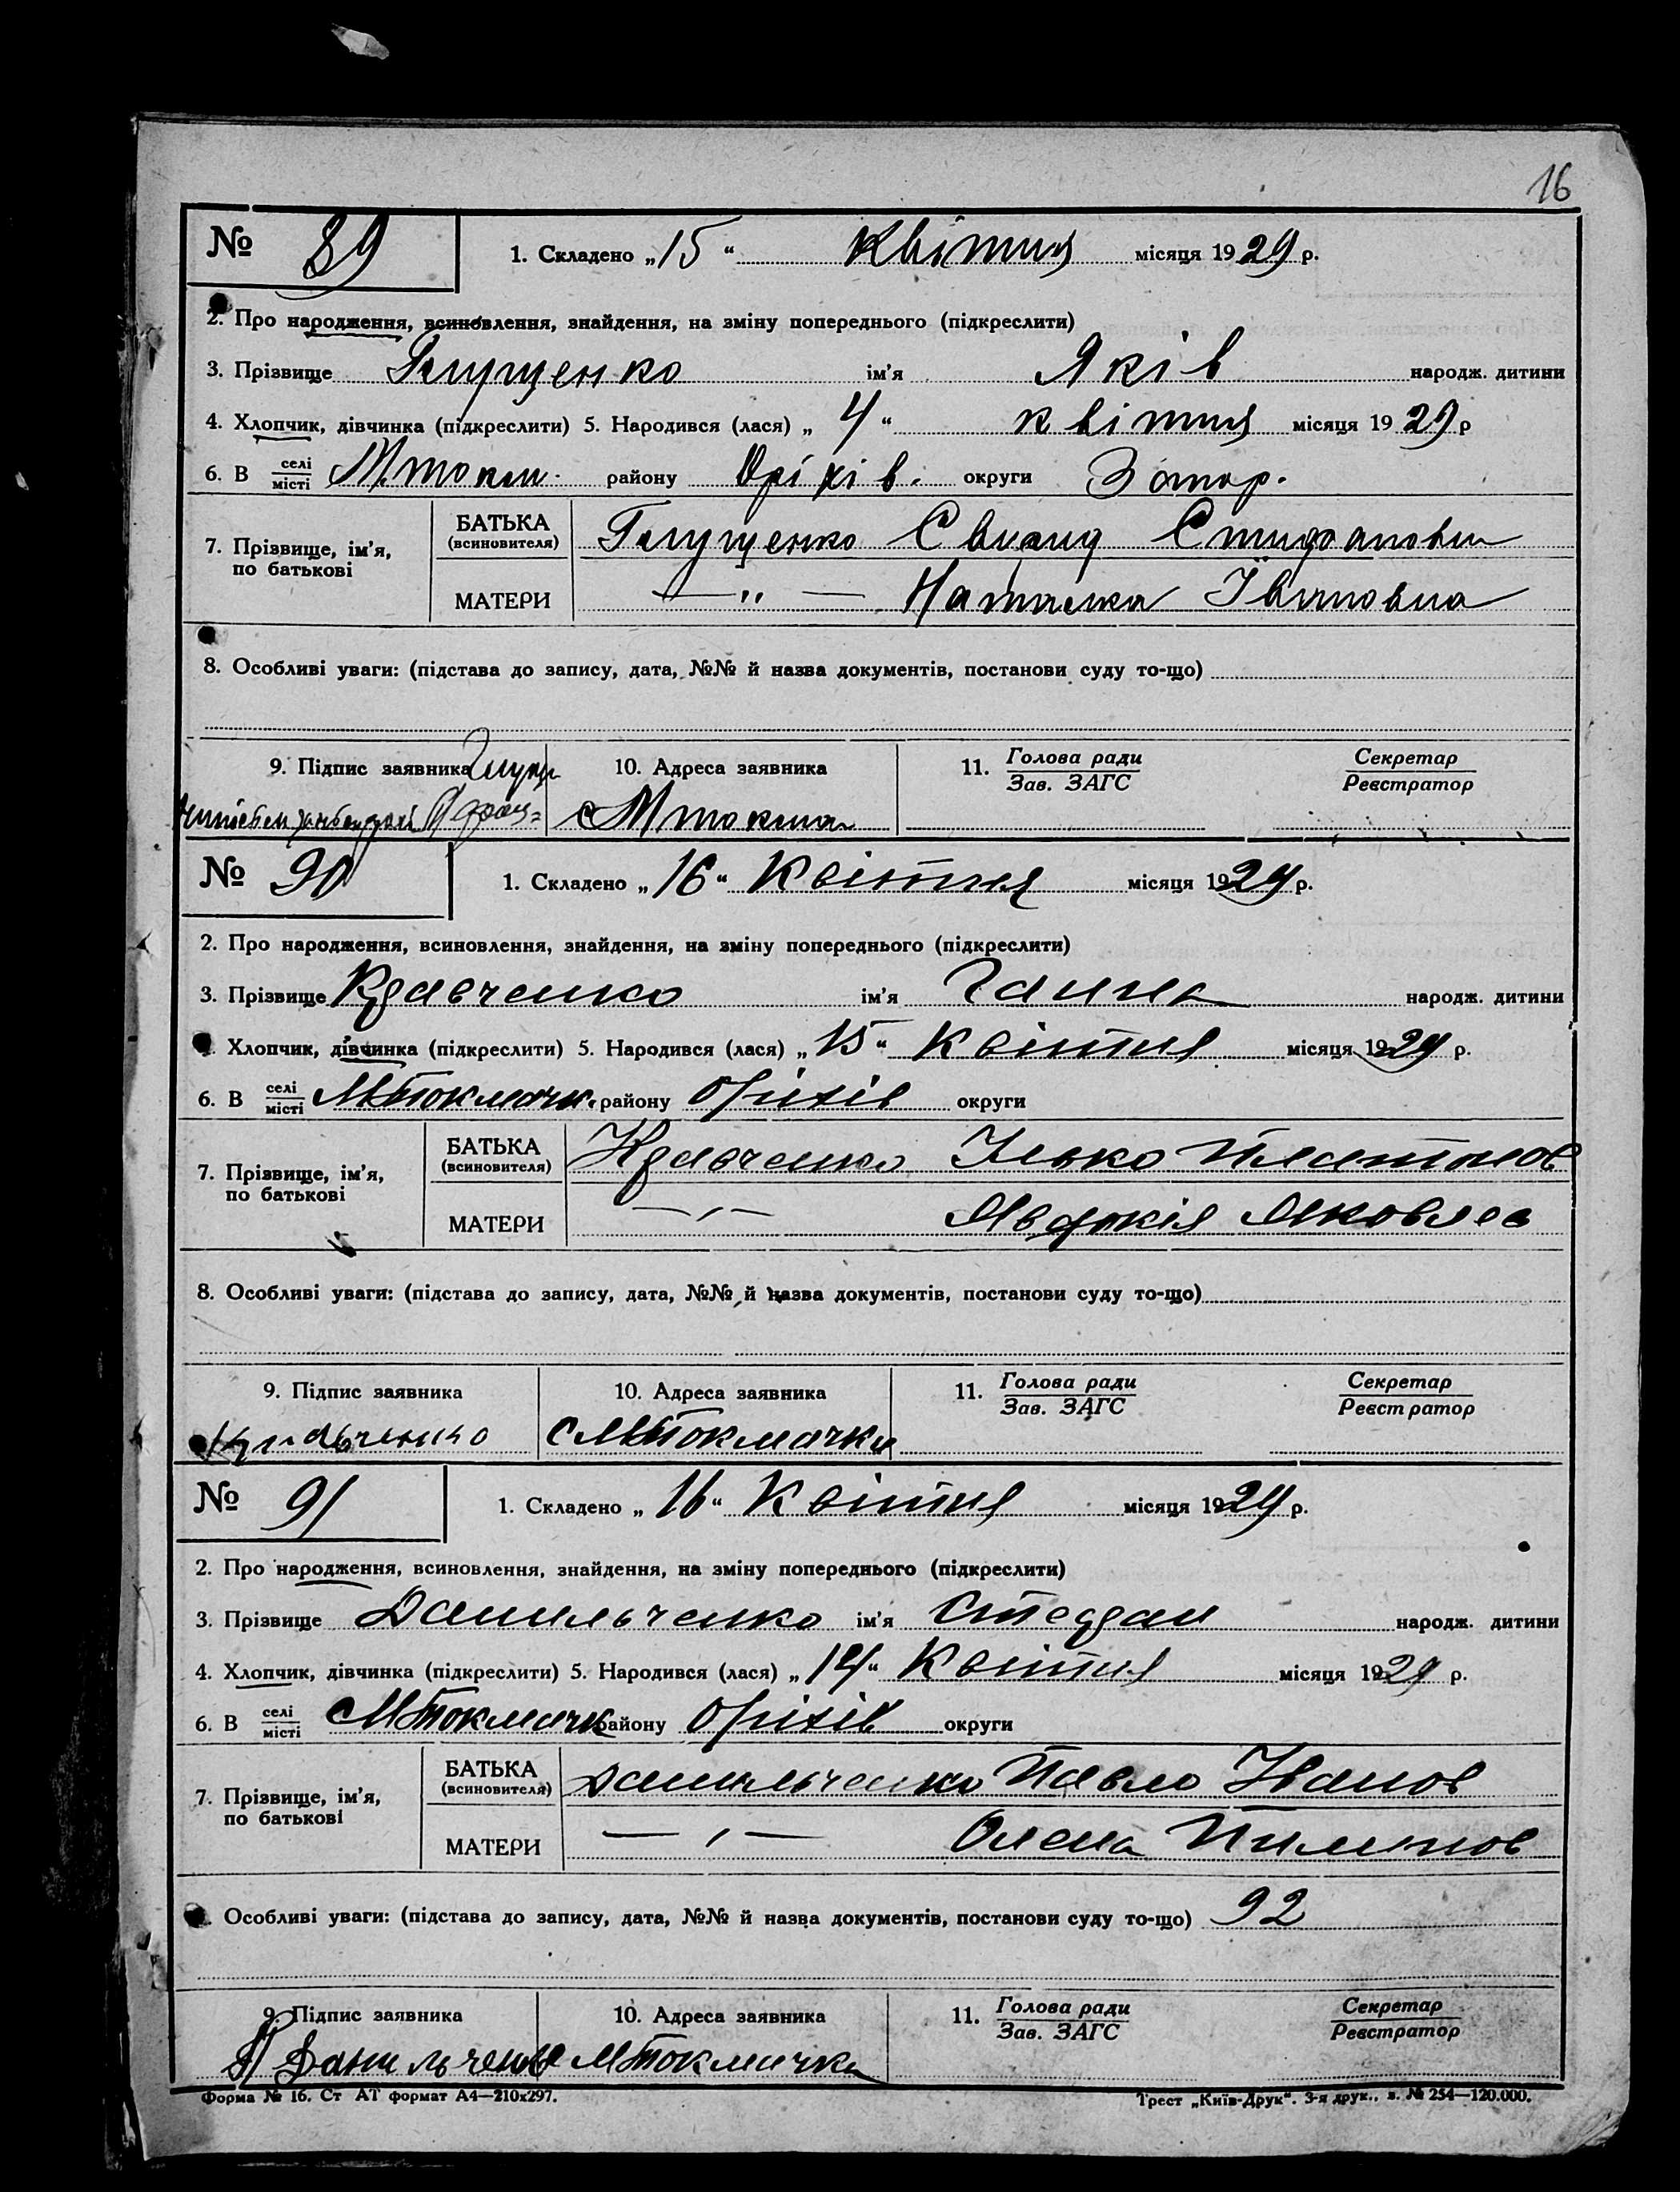 16
№ 89 1. Складено „15“ квітня місяця 1929 р.
2. Про народження, всиновлення, знайдення, на зміну попереднього (підкреслити)
3. Прізвище Глущенко ім’я Яків народж. дитини
4. Хлопчик, дівчинка (підкреслити) 5. Народився (лася) „4“ квітня місяця 1929 р
6. В селі/місті М. Токм. району Оріхів. округи Запор.
7. Прізвище, ім’я, по батькові
БАТЬКА (всиновителя) Глущенко
МАТЕРИ —„— Наталка Івановна
8. Особливі уваги: (підстава до запису, дата, №№ й назва документів, постанови суду то-що)
9. Підпис заявника 10. Адреса заявника 11. Голова ради/Зав. ЗАГС Секретар/Реєстратор
с М токма
№ 90 1. Складено „16“ Квітня місяця 1929 р.
2. Про народження, всиновлення, знайдення, на зміну попереднього (підкреслити)
3. Прізвище Кравченко ім’я Ганна народж. дитини
Хлопчик, дівчинка (підкреслити) 5. Народився (лася) „15“ Квітня місяця 1929 р.
6. В селі/місті МТокмачк. району Оріхів округи
7. Прізвище, ім’я, по батькові
БАТЬКА (всиновителя) Кравченко Ілько Платонов
МАТЕРИ —„— Явдокія Яковлев
8. Особливі уваги: (підстава до запису, дата, №№ й назва документів, постанови суду то-що)
9. Підпис заявника 10. Адреса заявника 11. Голова ради/Зав. ЗАГС Секретар/Реєстратор
Кравченко с МТокмачка
№ 91 1. Складено „16“ Квітня місяця 1929 р.
2. Про народження, всиновлення, знайдення, на зміну попереднього (підкреслити)
3. Прізвище Данильченко ім’я Степан народж. дитини
4. Хлопчик, дівчинка (підкреслити) 5. Народився (лася) „14“ Квітня місяця 1929 р.
6. В селі/місті с МТокмачк району Оріхів округи
7. Прізвище, ім’я, по батькові
БАТЬКА (всиновителя) Данильченко Павло Іванов
МАТЕРИ —„— Олена Пименов
Особливі уваги: (підстава до запису, дата, №№ й назва документів, постанови суду то-що) 92
9. Підпис заявника 10. Адреса заявника 11. Голова ради/Зав. ЗАГС Секретар/Реєстратор
П Данильченко с МТокмачка
Форма № 16. Ст АТ формат А4—210х297. Трест „Київ-Друк“. 3-я друк., з. № 254—120.000.